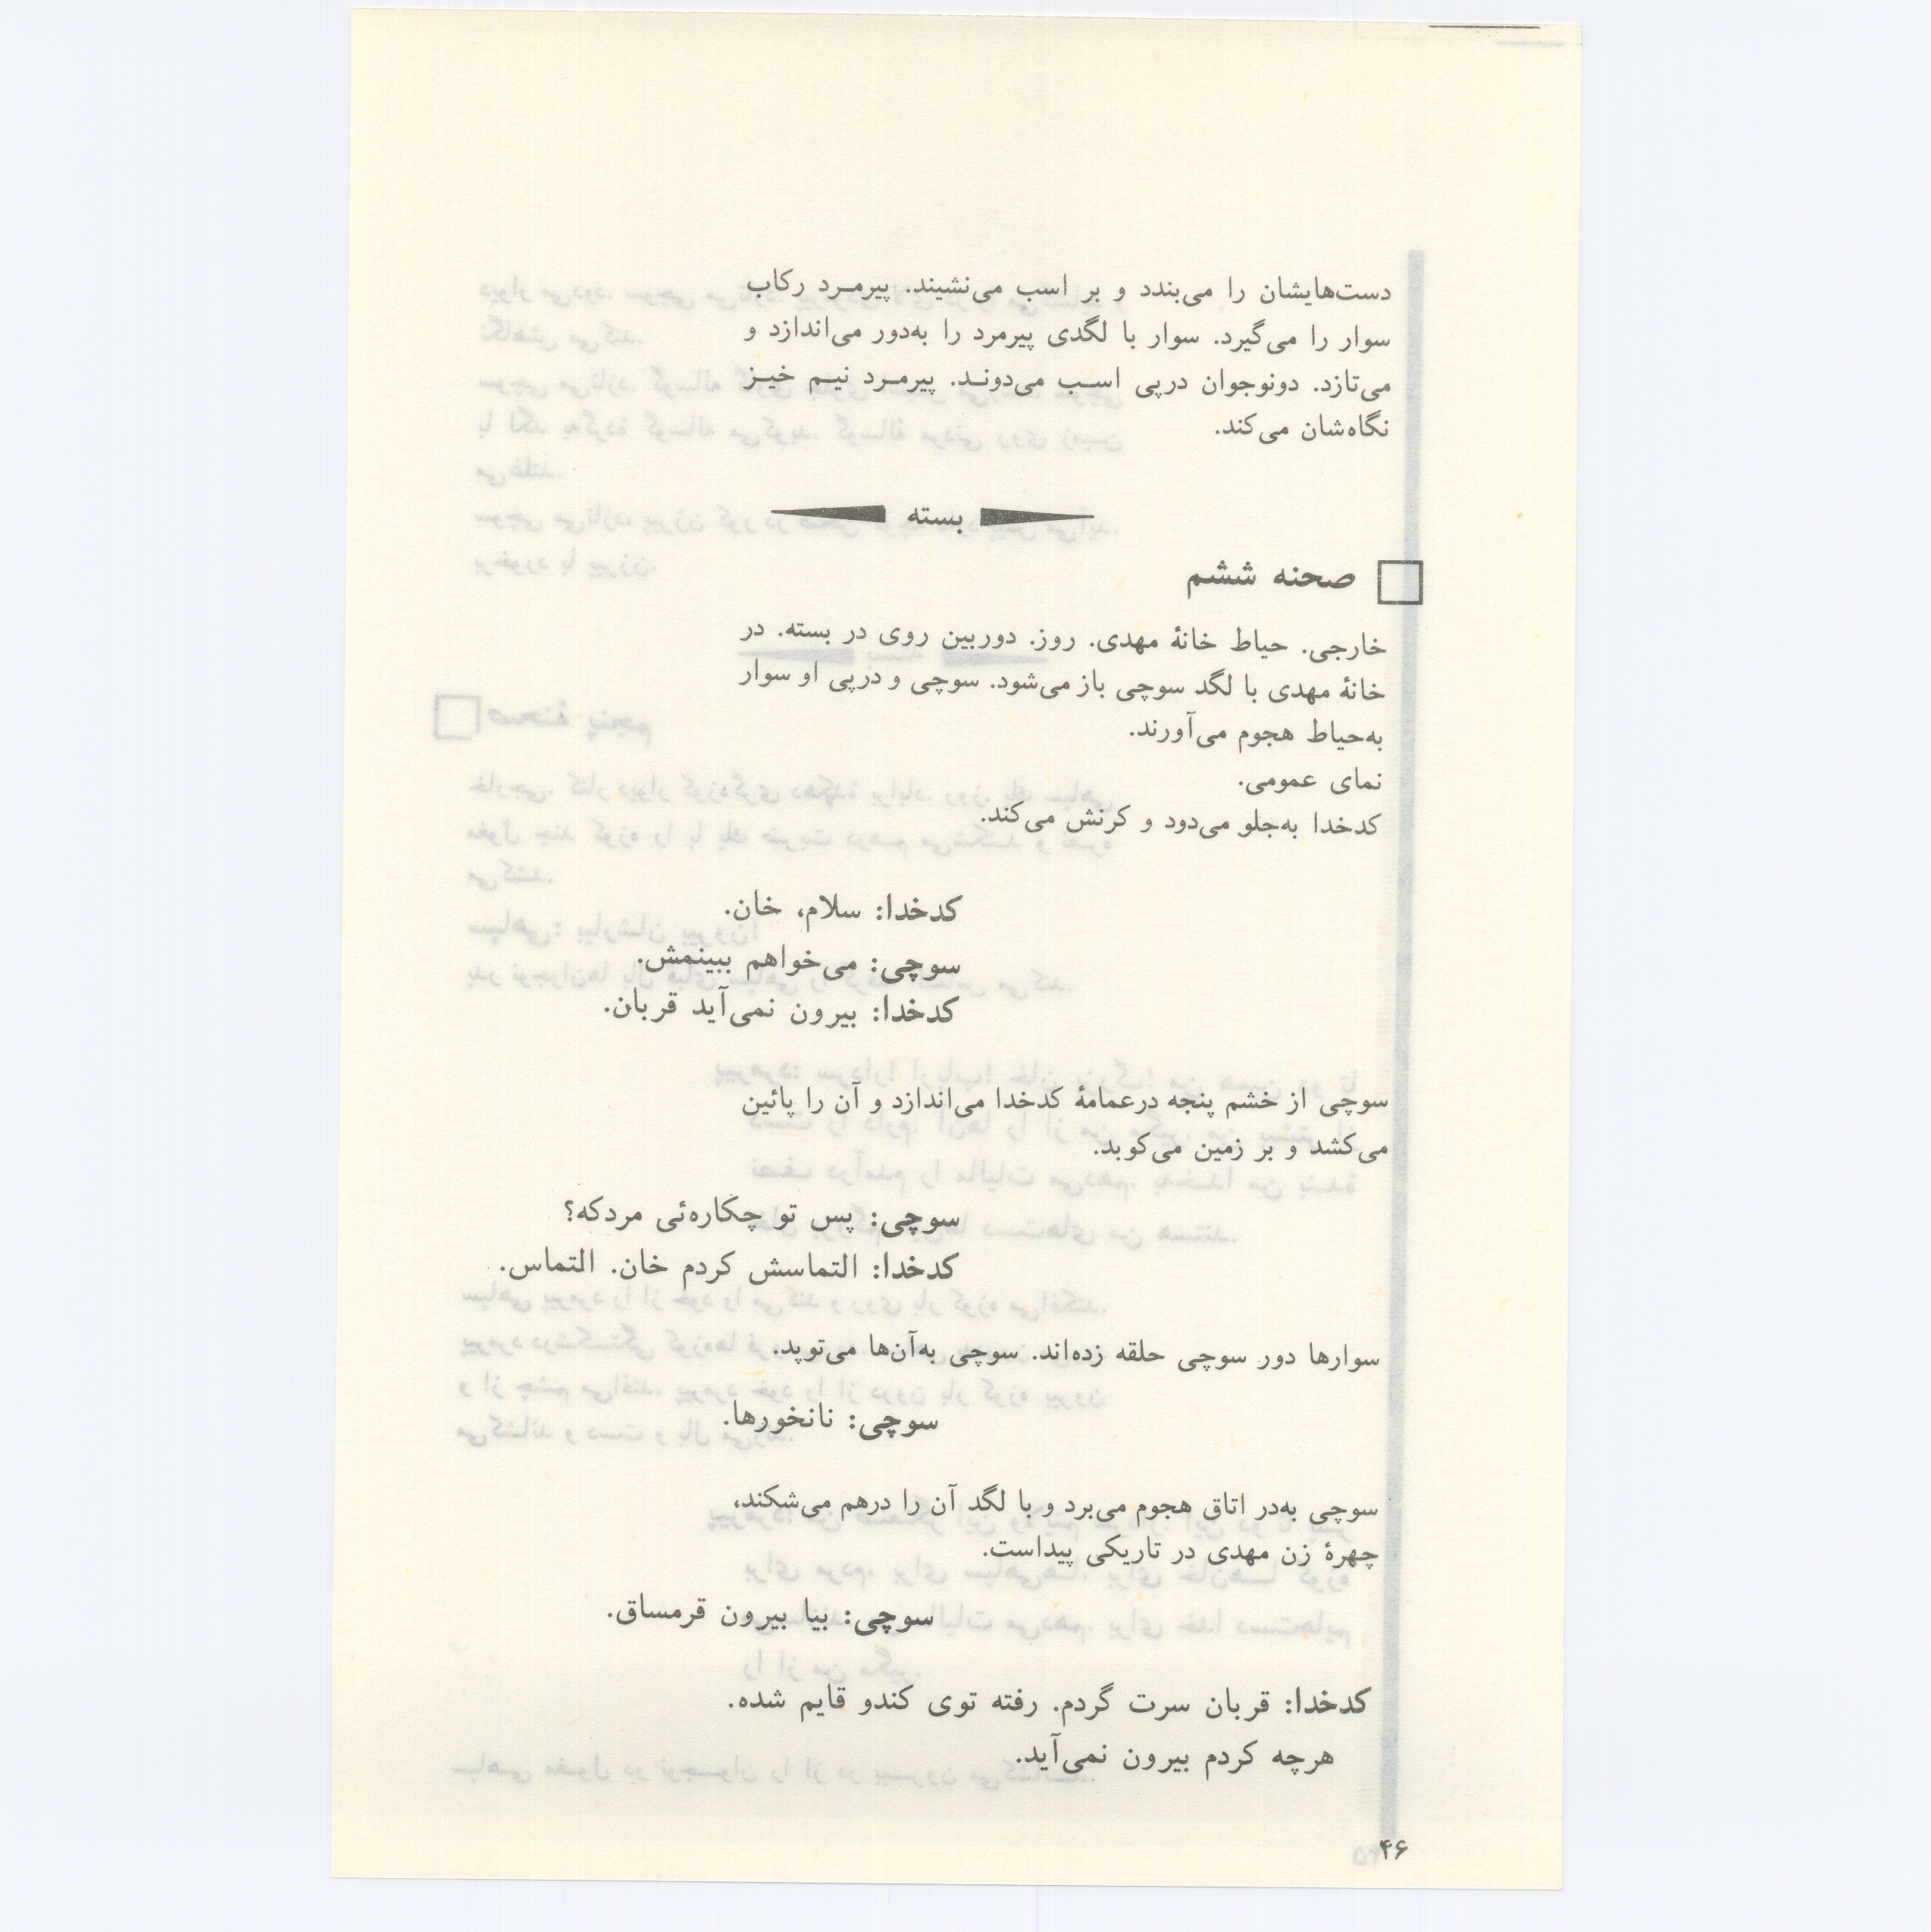 دست‌هایشان را می‌بندد و بر اسب می‌نشیند. پیرمرد رکاب
سوار را می‌گیرد. سوار با لگدی پیرمرد را به‌دور می‌اندازد و
می‌تازد. دونوجوان درپی اسب می‌دوند. پیرمرد نیم خیز
نگاه‌شان می‌کند.
بسته
صحنه ششم
خارجی. حیاط خانهٔ مهدی. روز. دوربین روی در بسته. در
خانهٔ مهدی با لگد سوچی باز می‌شود. سوچی و درپی او سوار
به‌حیاط هجوم می‌آورند.
نمای عمومی.
کدخدا به‌جلو می‌دود و کرنش می‌کند.
کدخدا: سلام، خان.
سوچی: می‌خواهم ببینمش.
کدخدا: بیرون نمی‌آید قربان.
سوچی از خشم پنجه درعمامهٔ کدخدا می‌اندازد و آن را پائین
می‌کشد و بر زمین می‌کوبد.
سوچی: پس تو چکاره‌ئی مردکه؟
کدخدا: التماسش کردم خان. التماس.
سوارها دور سوچی حلقه زده‌اند. سوچی به‌آن‌ها می‌توپد.
سوچی: نانخورها.
سوچی به‌در اتاق هجوم می‌برد و با لگد آن را درهم می‌شکند،
چهرهٔ زن مهدی در تاریکی پیداست.
سوچی: بیا بیرون قرمساق.
کدخدا: قربان سرت گردم. رفته توی کندو قایم شده.
هرچه کردم بیرون نمی‌آید.
۴۶